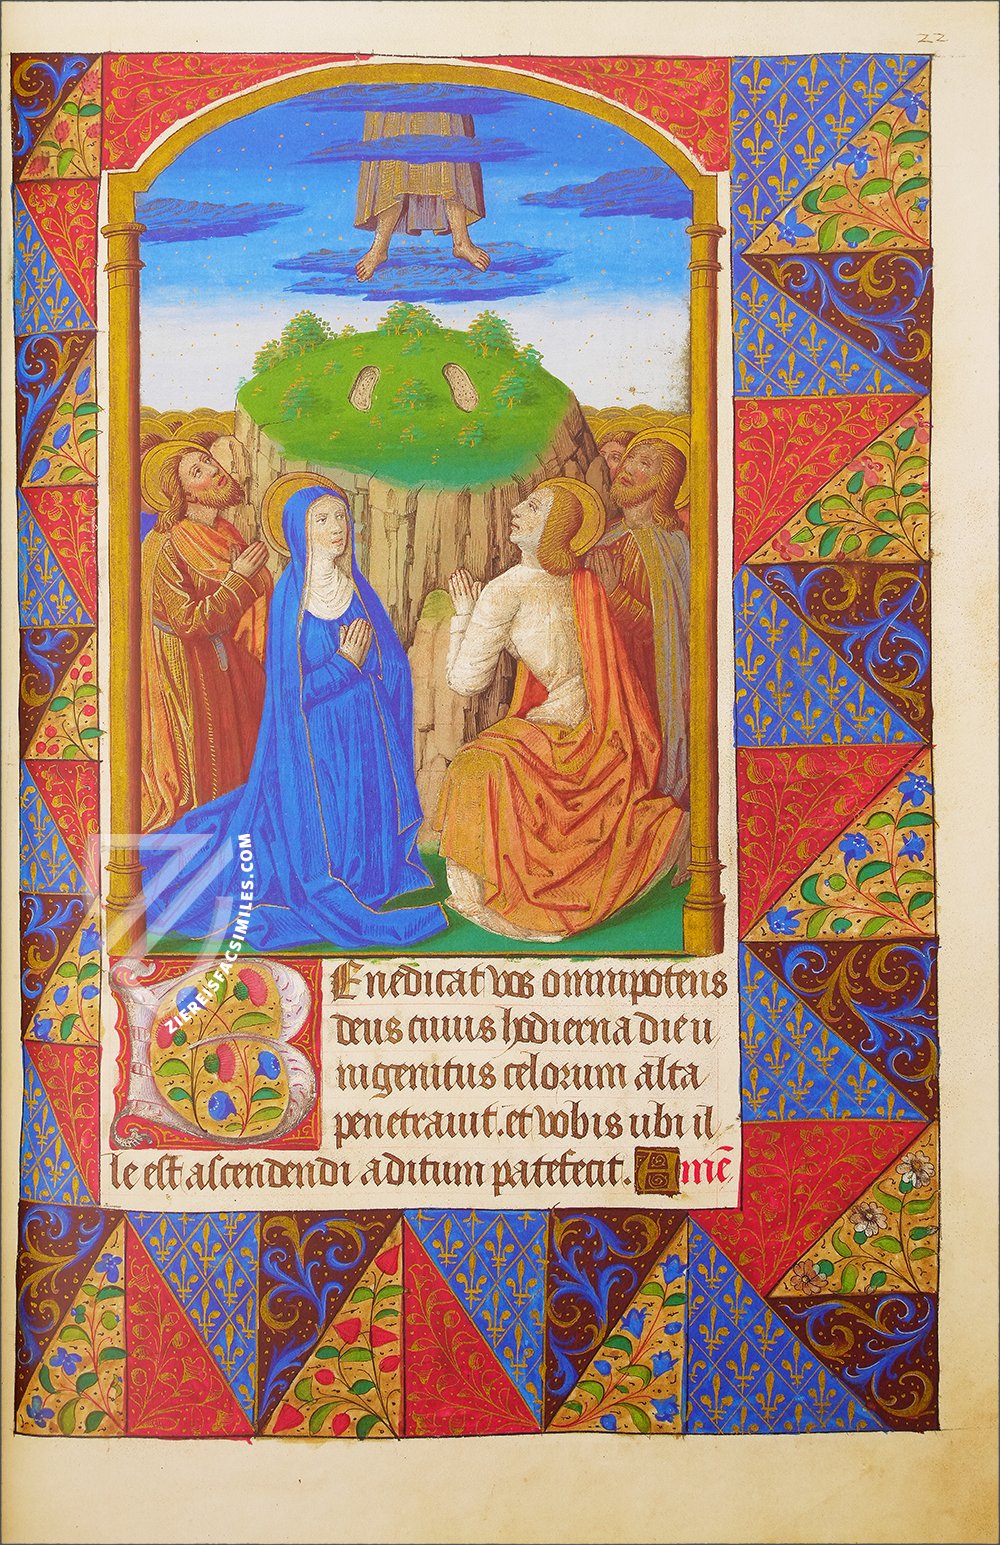 22
Benedicat vos omnipotens
deus cuius hodierna die u
nigenitus celorum alta
penetrauit. et vobis ubi il
le est ascendendi aditum patefecit. Amē
ZIEREISFACSIMILES.COM